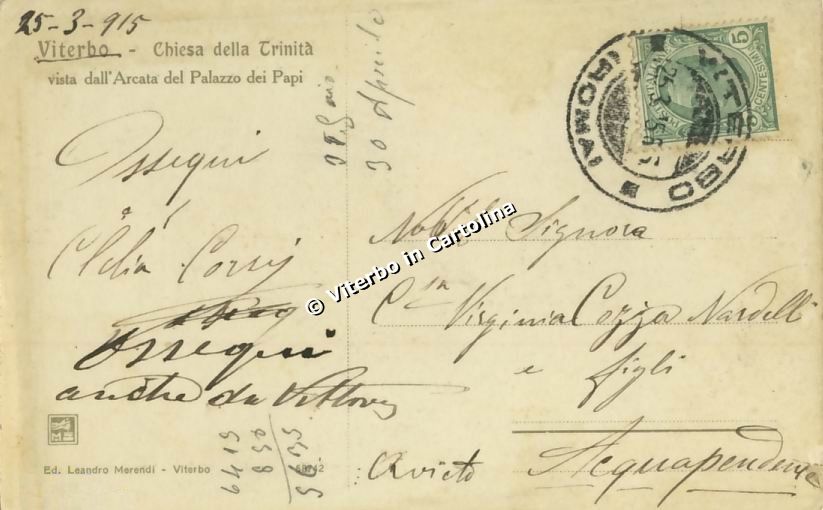 25-3-915
Viterbo - Chiesa della Trinità
vista dall'Arcata del Palazzo dei Papi
30 Aprile
Ossequi
Clelia Corsi
Ossequi
anche da Vittorio
VITERBO
(ROMA)
CENTESIMI 5
© Viterbo in Cartolina
Signora
C.ssa Virginia Cozza Nardelli
e figli
Acquapendente
Orvieto
6419
5635
Ed. Leandro Merendi - Viterbo
68742